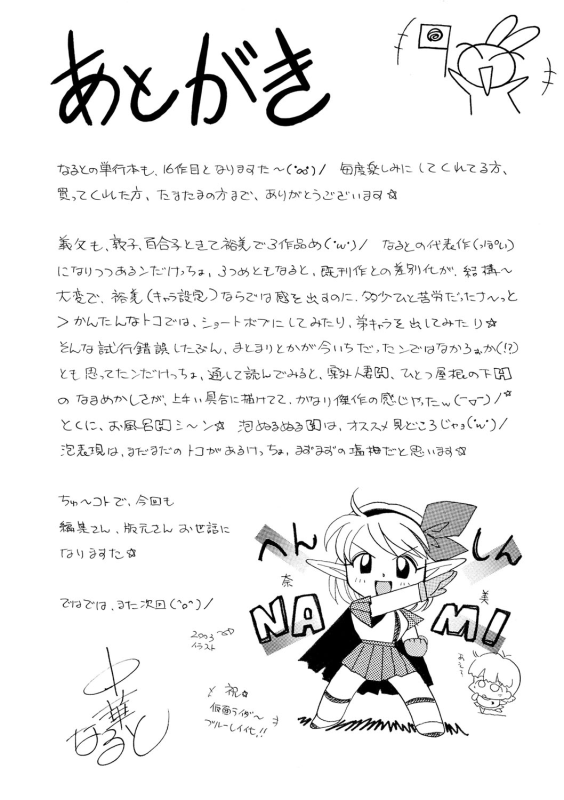 あとがき
なるとの単行本も、16作目となりますた～(・ω・)/ 毎度楽しみにしてくれてる方、
買ってくれた方、たまたまの方まで、ありがとうございます☆
義父も、敦子、百合子ときて裕美で3作品め(・ω・)/ なるとの代表作(っぽい)
になりつつあるンだけっちょ、3つめともなると、既刊作との差別化が、結構～
大変で、裕美(キャラ設定)ならでは感を出すのに、多少ひと苦労だったナ～っと
＞かんたんなトコでは、ショートボブにしてみたり、弟キャラを出してみたり☆
そんな試行錯誤したぶん、まとまりとかが今いちだったンではなかろぉか(!?)
とも思ってたンだけっちょ、通して読んでみると、案外人妻、ひとつ屋根の下
のなまめかしさが、上手い具合に描けてて、かなり傑作の感じやったw(ーωー)/☆
とくに、お風呂シ～ン☆ 泡ぬるぬるは、オススメ見どころじゃょ(・ω・)/
泡表現は、まだまだのトコがあるけっちょ、まずまずの塩梅だと思います☆
ちゅ～コトで、今回も
編集さん、版元さんお世話に
なりますた☆
ではでは、また次回(^o^)/
へん
しん
奈
美
NA
MI
2003
イラスト
あえ～
祝☆
仮面ライダ～
ブルーレイ化!!
中華
なると